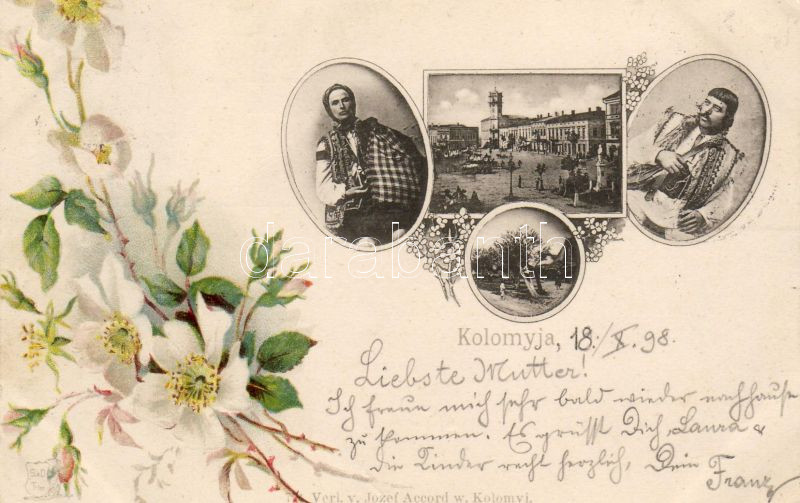 darabanth
Kolomyja, 18./X. 98.
Liebste Mutter!
Ich freue mich sehr bald wieder nachhause
zu kommen. Es grüsst Dich, Laura &
die Kinder recht herzlich, Dein Franz
Verl. v. Jozef Accord w. Kolomyi.